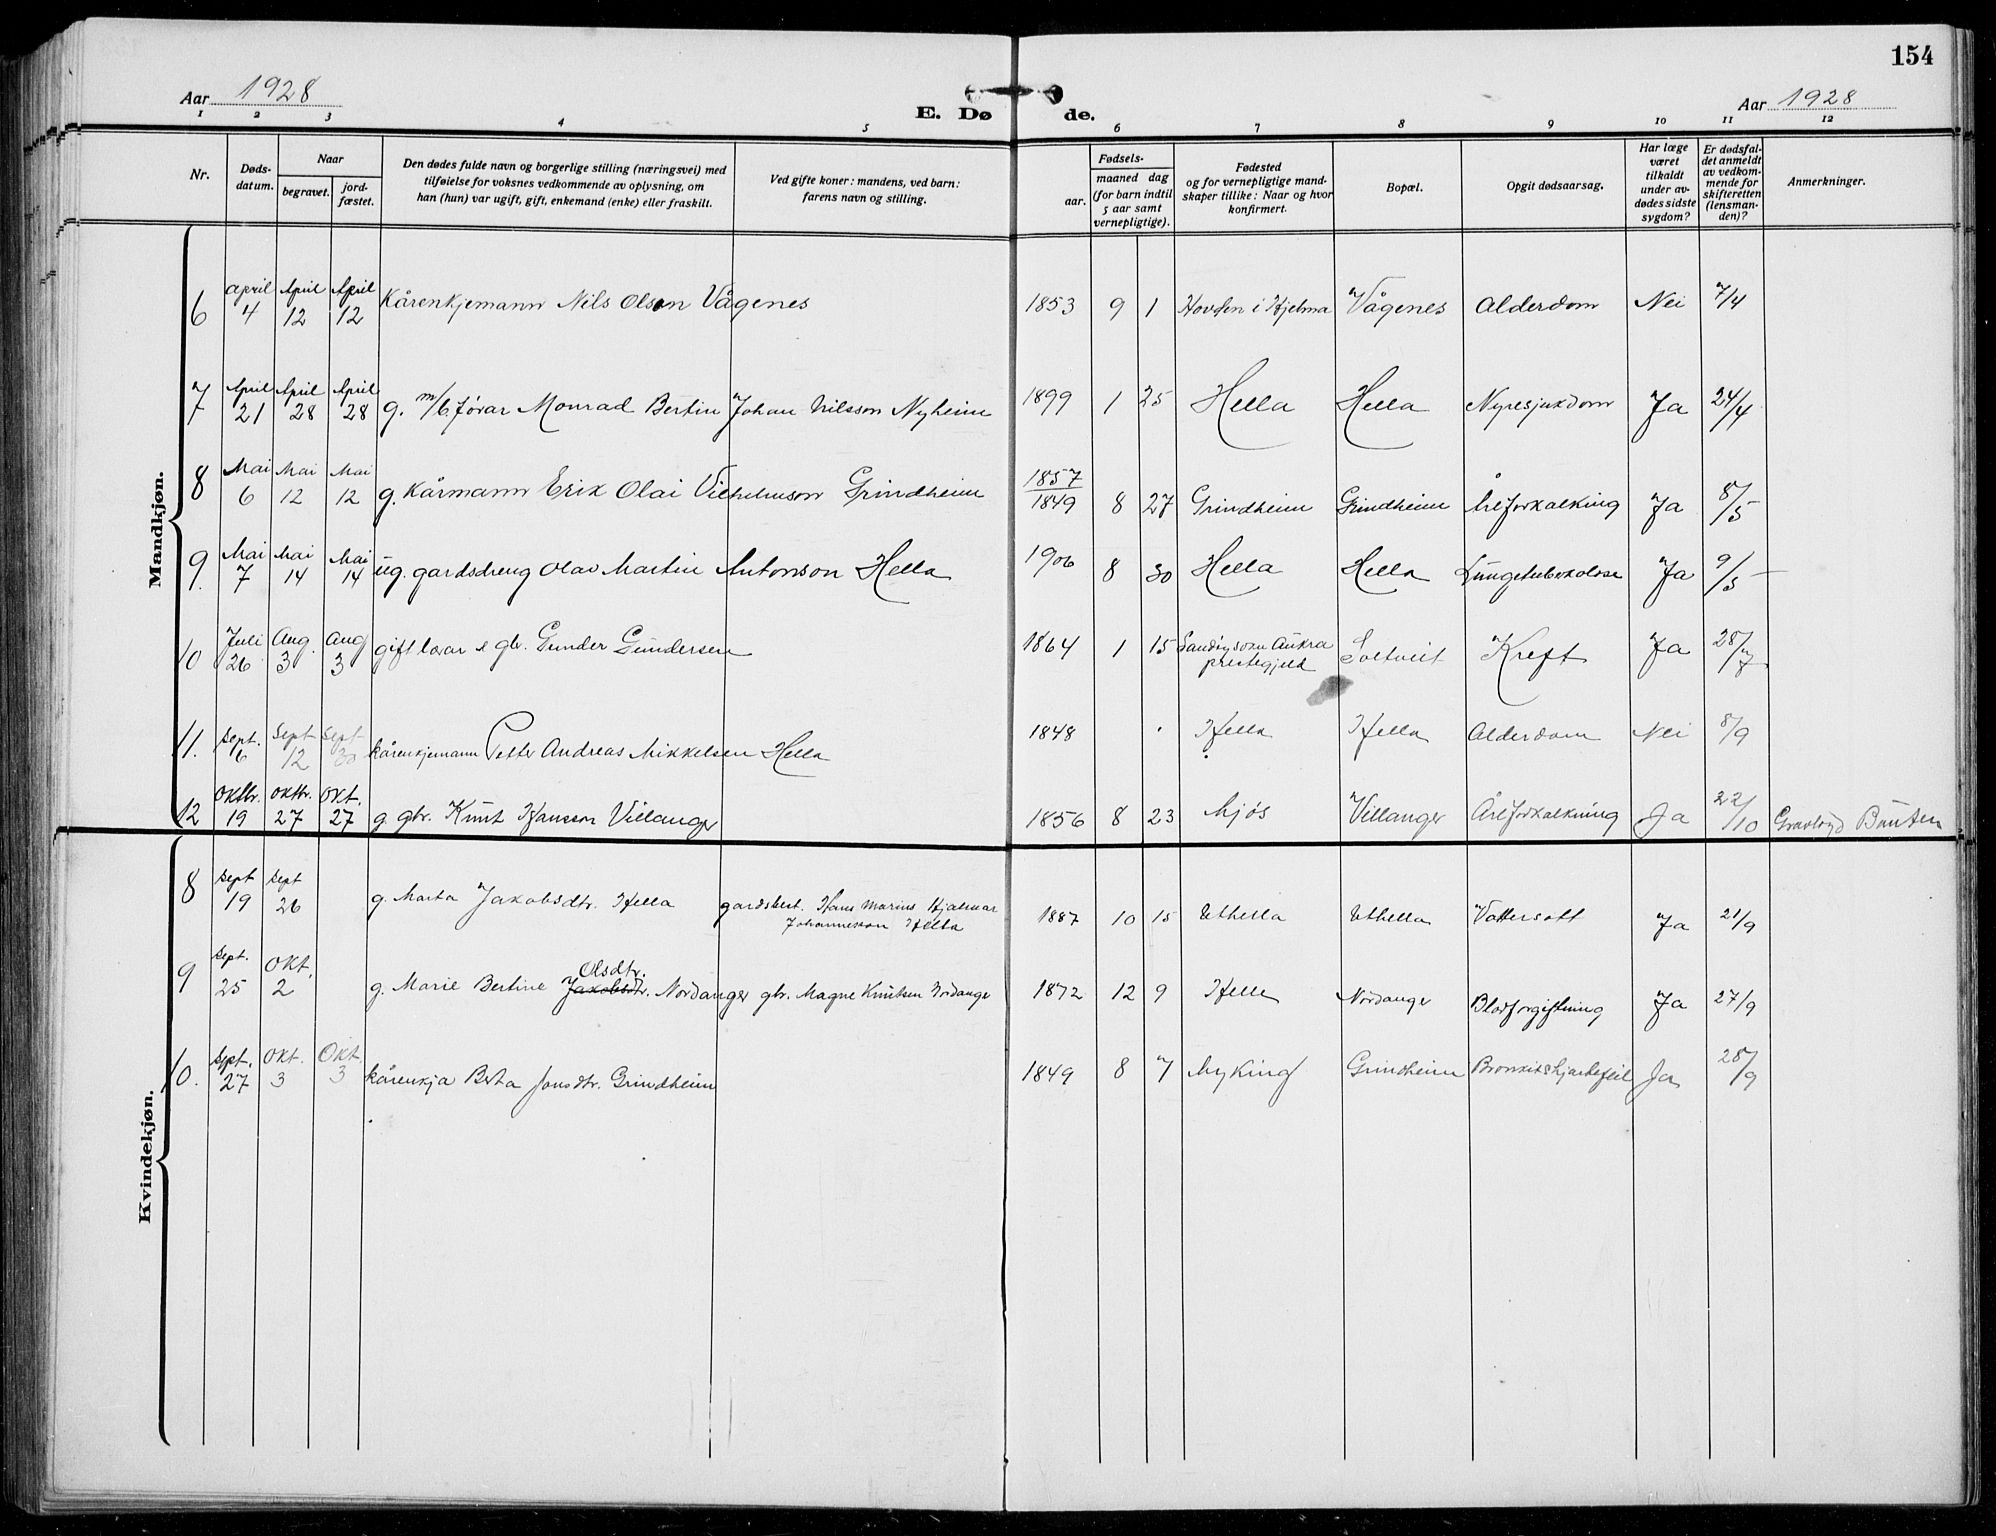 154
Aar 1928
E. Døde.
Aar 1928
1 2 3 4 5 6 7 8 9 10 11 12
Nr.
Døds-
datum.
Naar
begravet.
jord-
fæstet.
Den dødes fulde navn og borgerlige stilling (næringsvei) med
tilføielse for voksnes vedkommende av oplysning, om
han (hun) var ugift, gift, enkemand (enke) eller fraskilt.
Ved gifte koner: mandens, ved barn:
farens navn og stilling.
Fødsels-
aar.
maaned dag
(for barn indtil
5 aar samt
vernepligtige).
Fødested
og for vernepligtige mand-
skaper tillike: Naar og hvor
konfirmert.
Bopæl.
Opgit dødsaarsag.
Har læge
været
tilkaldt
under av-
dødes sidste
sygdom?
Er dødsfal-
det anmeldt
av vedkom-
mende for
skifteretten
(lensman-
den)?
Anmerkninger.
Mandkjøn.
6 April 4 April 12 April 12 Kårenkjemann Nils Olson Vågenes 1853 9 1 Hovden i Hjelma Vågenes Alderdom Nei 7/4
7 April 21 April 28 April 28 g. m/b.førar Monrad Bertin Johan Nilsson Nyheim 1899 1 25 Hella Hella Nyresjukdom Ja 24/4
8 Mai 6 Mai 12 Mai 12 g. Kårmann Erik Olai Vilhelmson Grindheim 1857/1849 8 27 Grindheim Grindheim Åreforkalking Ja 8/5
9. Mai 7 Mai 14 Mai 14 ug. gardsdreng Olav Martin Antonson Hella 1906 8 30 Hella Hella Lungetuberkolose Ja 9/5
10 Juli 26 Aug. 3 Aug 3 gift lærar & gbr. Gunder Gundersen 1864 1 15 Sandøy sokn Aukra
prestegjeld Soltveit Kreft Ja 28/7
11. Sept. 6 Sept 12 Sept 30 kårenkjemann Petter Andreas Mikkelsen Hella 1848 Hella Hella Alderdom Nei 8/9
12 Oktbr. 19 Oktbr. 27 Okt. 27 g. gbr. Knut Hansson Villanger 1856 8 23 Mjøs Villanger Åreforkalkning Ja 22/10 Gravlagd Bøuten
Kvindekjøn.
8 Sept 19 Sept 26 g. Marta Jakobsdtr. Hella gardsbest. Hans Marius Hjalmar
Johannesson Hella 1887 10 15 Uthella Uthella Vattersott Ja 21/9
Olsdtr.
9 Sept. 25 Okt. 2 g. Marie Bertine Jakobsdtr. Nordanger gbr. Magne Knutsen Nordanger 1872 12 9 Helle Nordanger Blodforgiftning Ja 27/9
10. Sept. 27 Okt. 3 Okt. 3 kårenkja Berta Jonsdtr. Grindheim 1849 8 7 Myking Grindheim Bronkitshjartefeil Ja 28/9